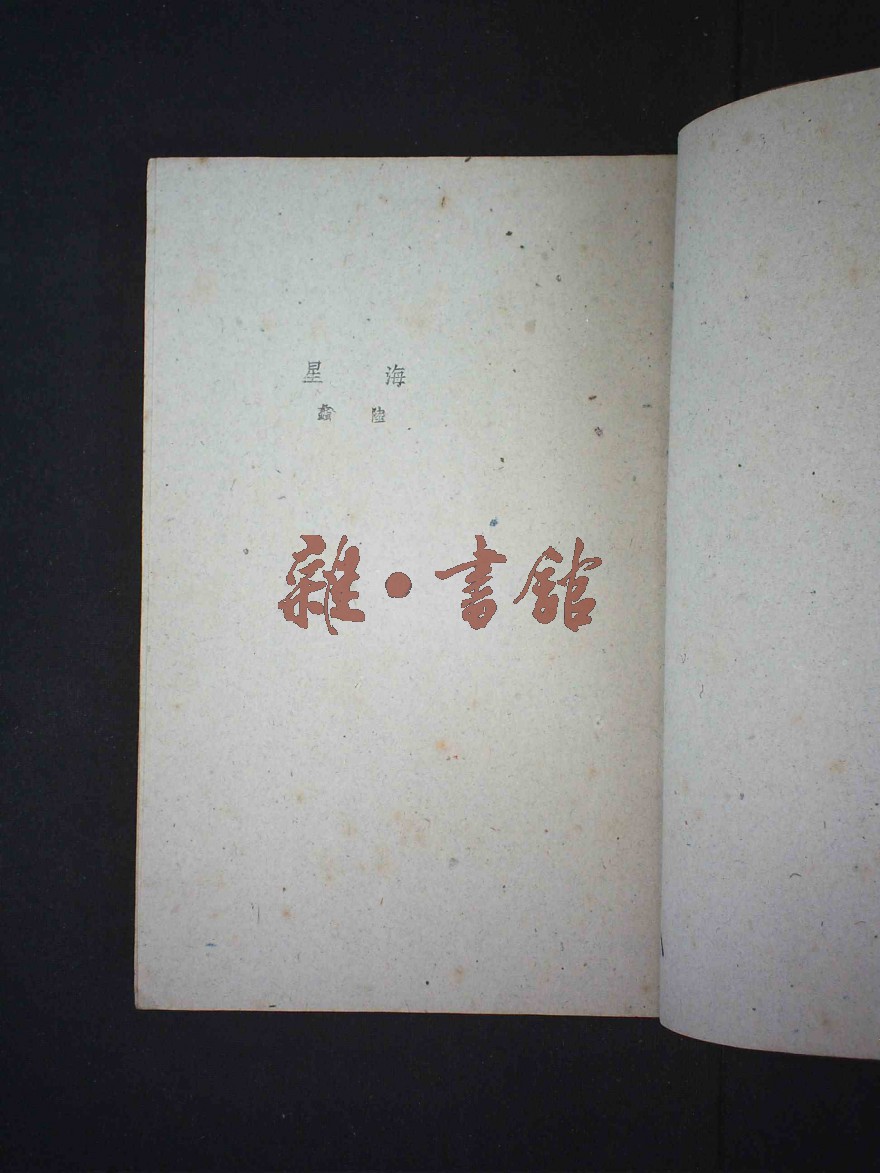 海星
陸蠡
雜·書館